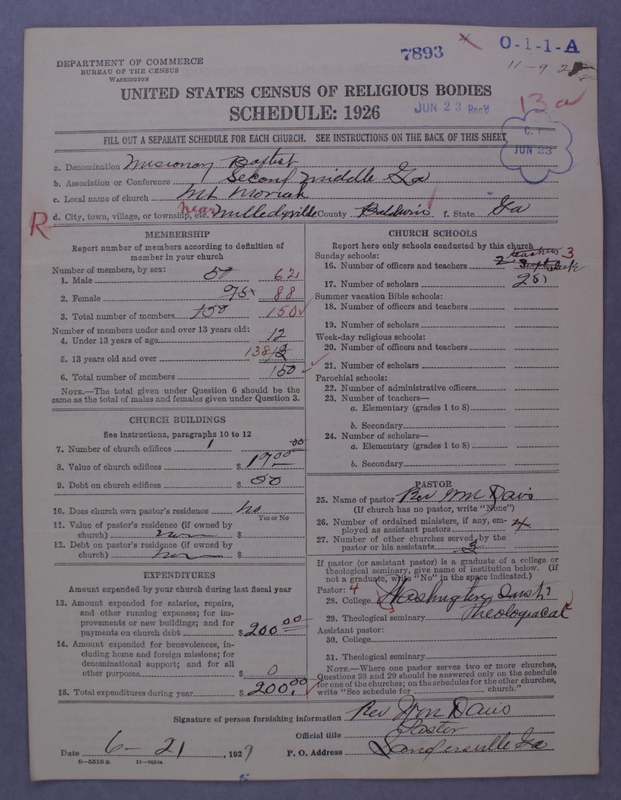 7893
O-1-1-A
DEPARTMENT OF COMMERCE
BUREAU OF THE CENSUS
WASHINGTON
11-9
UNITED STATES CENSUS OF RELIGIOUS BODIES
SCHEDULE: 1926
JUN 23 Rec'd
13a
FILL OUT A SEPARATE SCHEDULE FOR EACH CHURCH. SEE INSTRUCTIONS ON THE BACK OF THIS SHEET
JUN 23
a. Denomination Misionary Baptist
b. Association or Conference Second middle Ga
c. Local name of church Mt Moriah
R
d. City, town, village, or township, etc. near Milledgville County Baldwin f. State Ga
MEMBERSHIP
Report number of members according to definition of
member in your church
Number of members, by sex:
1. Male 57 62
2. Female 95 88
3. Total number of members 150 150
Number of members under and over 13 years old:
4. Under 13 years of age 12
5. 13 years old and over 138
6. Total number of members 150
NOTE.—The total given under Question 6 should be the
same as the total of males and females given under Question 3.
CHURCH BUILDINGS
See instructions, paragraphs 10 to 12
7. Number of church edifices 1
8. Value of church edifices $ 1700.00
9. Debt on church edifices $ 00
10. Does church own pastor's residence no
Yes or No
11. Value of pastor's residence (if owned by
church) $
12. Debt on pastor's residence (if owned by
church) $
EXPENDITURES
Amount expended by your church during last fiscal year
13. Amount expended for salaries, repairs,
and other running expenses; for im-
provements or new buildings; and for
payments on church debt $ 200.00
14. Amount expended for benevolences, in-
cluding home and foreign missions; for
denominational support; and for all
other purposes $ 0
15. Total expenditures during year $ 200.00
CHURCH SCHOOLS
Report here only schools conducted by this church
Sunday schools:
16. Number of officers and teachers 2 teachers 3
17. Number of scholars 25
Summer vacation Bible schools:
18. Number of officers and teachers
19. Number of scholars
Week-day religious schools:
20. Number of officers and teachers
21. Number of scholars
Parochial schools:
22. Number of administrative officers
23. Number of teachers—
a. Elementary (grades 1 to 8)
b. Secondary
24. Number of scholars—
a. Elementary (grades 1 to 8)
b. Secondary
PASTOR
25. Name of pastor Rev Wm Davis
(If church has no pastor, write "None")
26. Number of ordained ministers, if any, em-
ployed as assistant pastors 4
27. Number of other churches served by the
pastor or his assistants 3
If pastor (or assistant pastor) is a graduate of a college or
theological seminary, give name of institution below. (If
not a graduate, write "No" in the space indicated.)
Pastor: 4
28. College Washington Insti
29. Theological seminary Theologiacal
Assistant pastor:
30. College
31. Theological seminary
NOTE.—Where one pastor serves two or more churches,
Questions 28 and 29 should be answered only on the schedule
for one of the churches; on the schedules for the other churches,
write "See schedule for church."
Signature of person furnishing information Rev Wm Davis
Official title Pastor
Date 6-21, 1927 P. O. Address Sandersville Ga